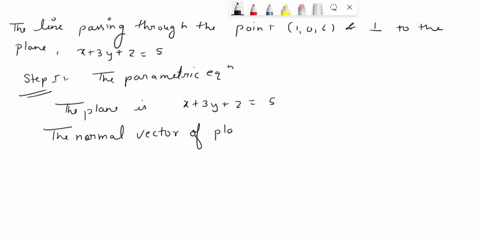 The line passing through the point (1,0,6) & ⊥ to the
plane, x+3y+2=5
Step I:- The parametric eqⁿ
The plane is x+3y+2=5
The normal vector of pla